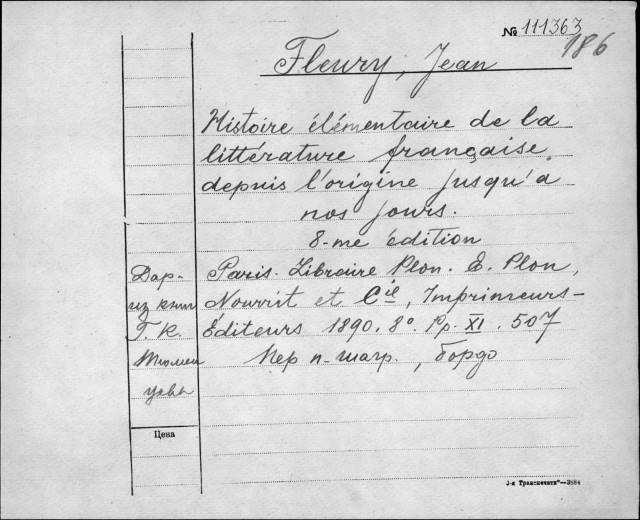 № 111363
186
Fleury, Jean
Histoire élémentaire de la
littérature française
depuis l'origine jusqu'à
nos jours.
8-me édition
Paris. Libraire Plon. E. Plon,
Nourrit et Cie, Imprimeurs-
Éditeurs 1890. 8° Pp. XI. 507
Пер п-шагр., бордо
Дар-
из книг
Г. К.
Тюмен
цевы
Цена
3-я Транспечати"—3884